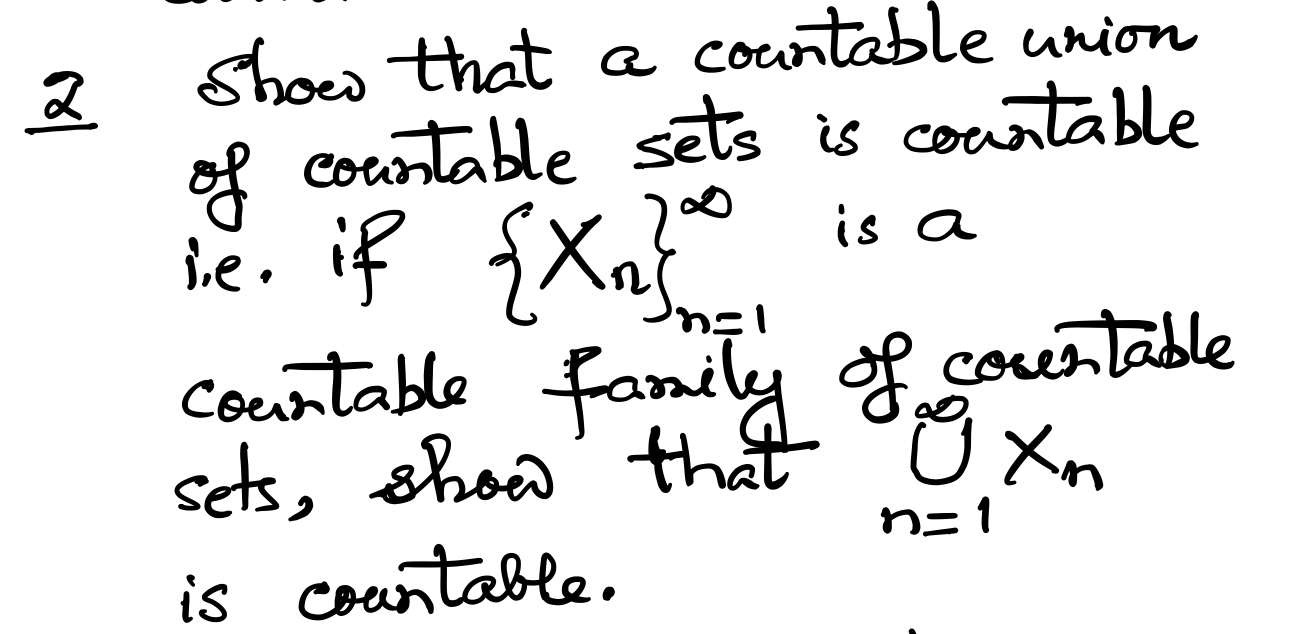 2 Show that a countable union
of countable sets is countable
i.e. if {Xₙ}∞ₙ₌₁ is a
countable family of countable
sets, show that ∞⋃ₙ₌₁ Xₙ
is countable.